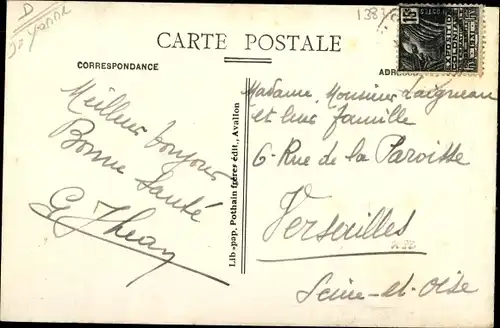 D
Yonne
1383
CARTE POSTALE
CORRESPONDANCE
Meilleur bonjour
Bonne Santé
Lib-pap. Pothain frères édit., Avallon
Madame, Monsieur Laigneau
et leur famille
6 Rue de la Paroisse
Versailles
Seine-et-Oise